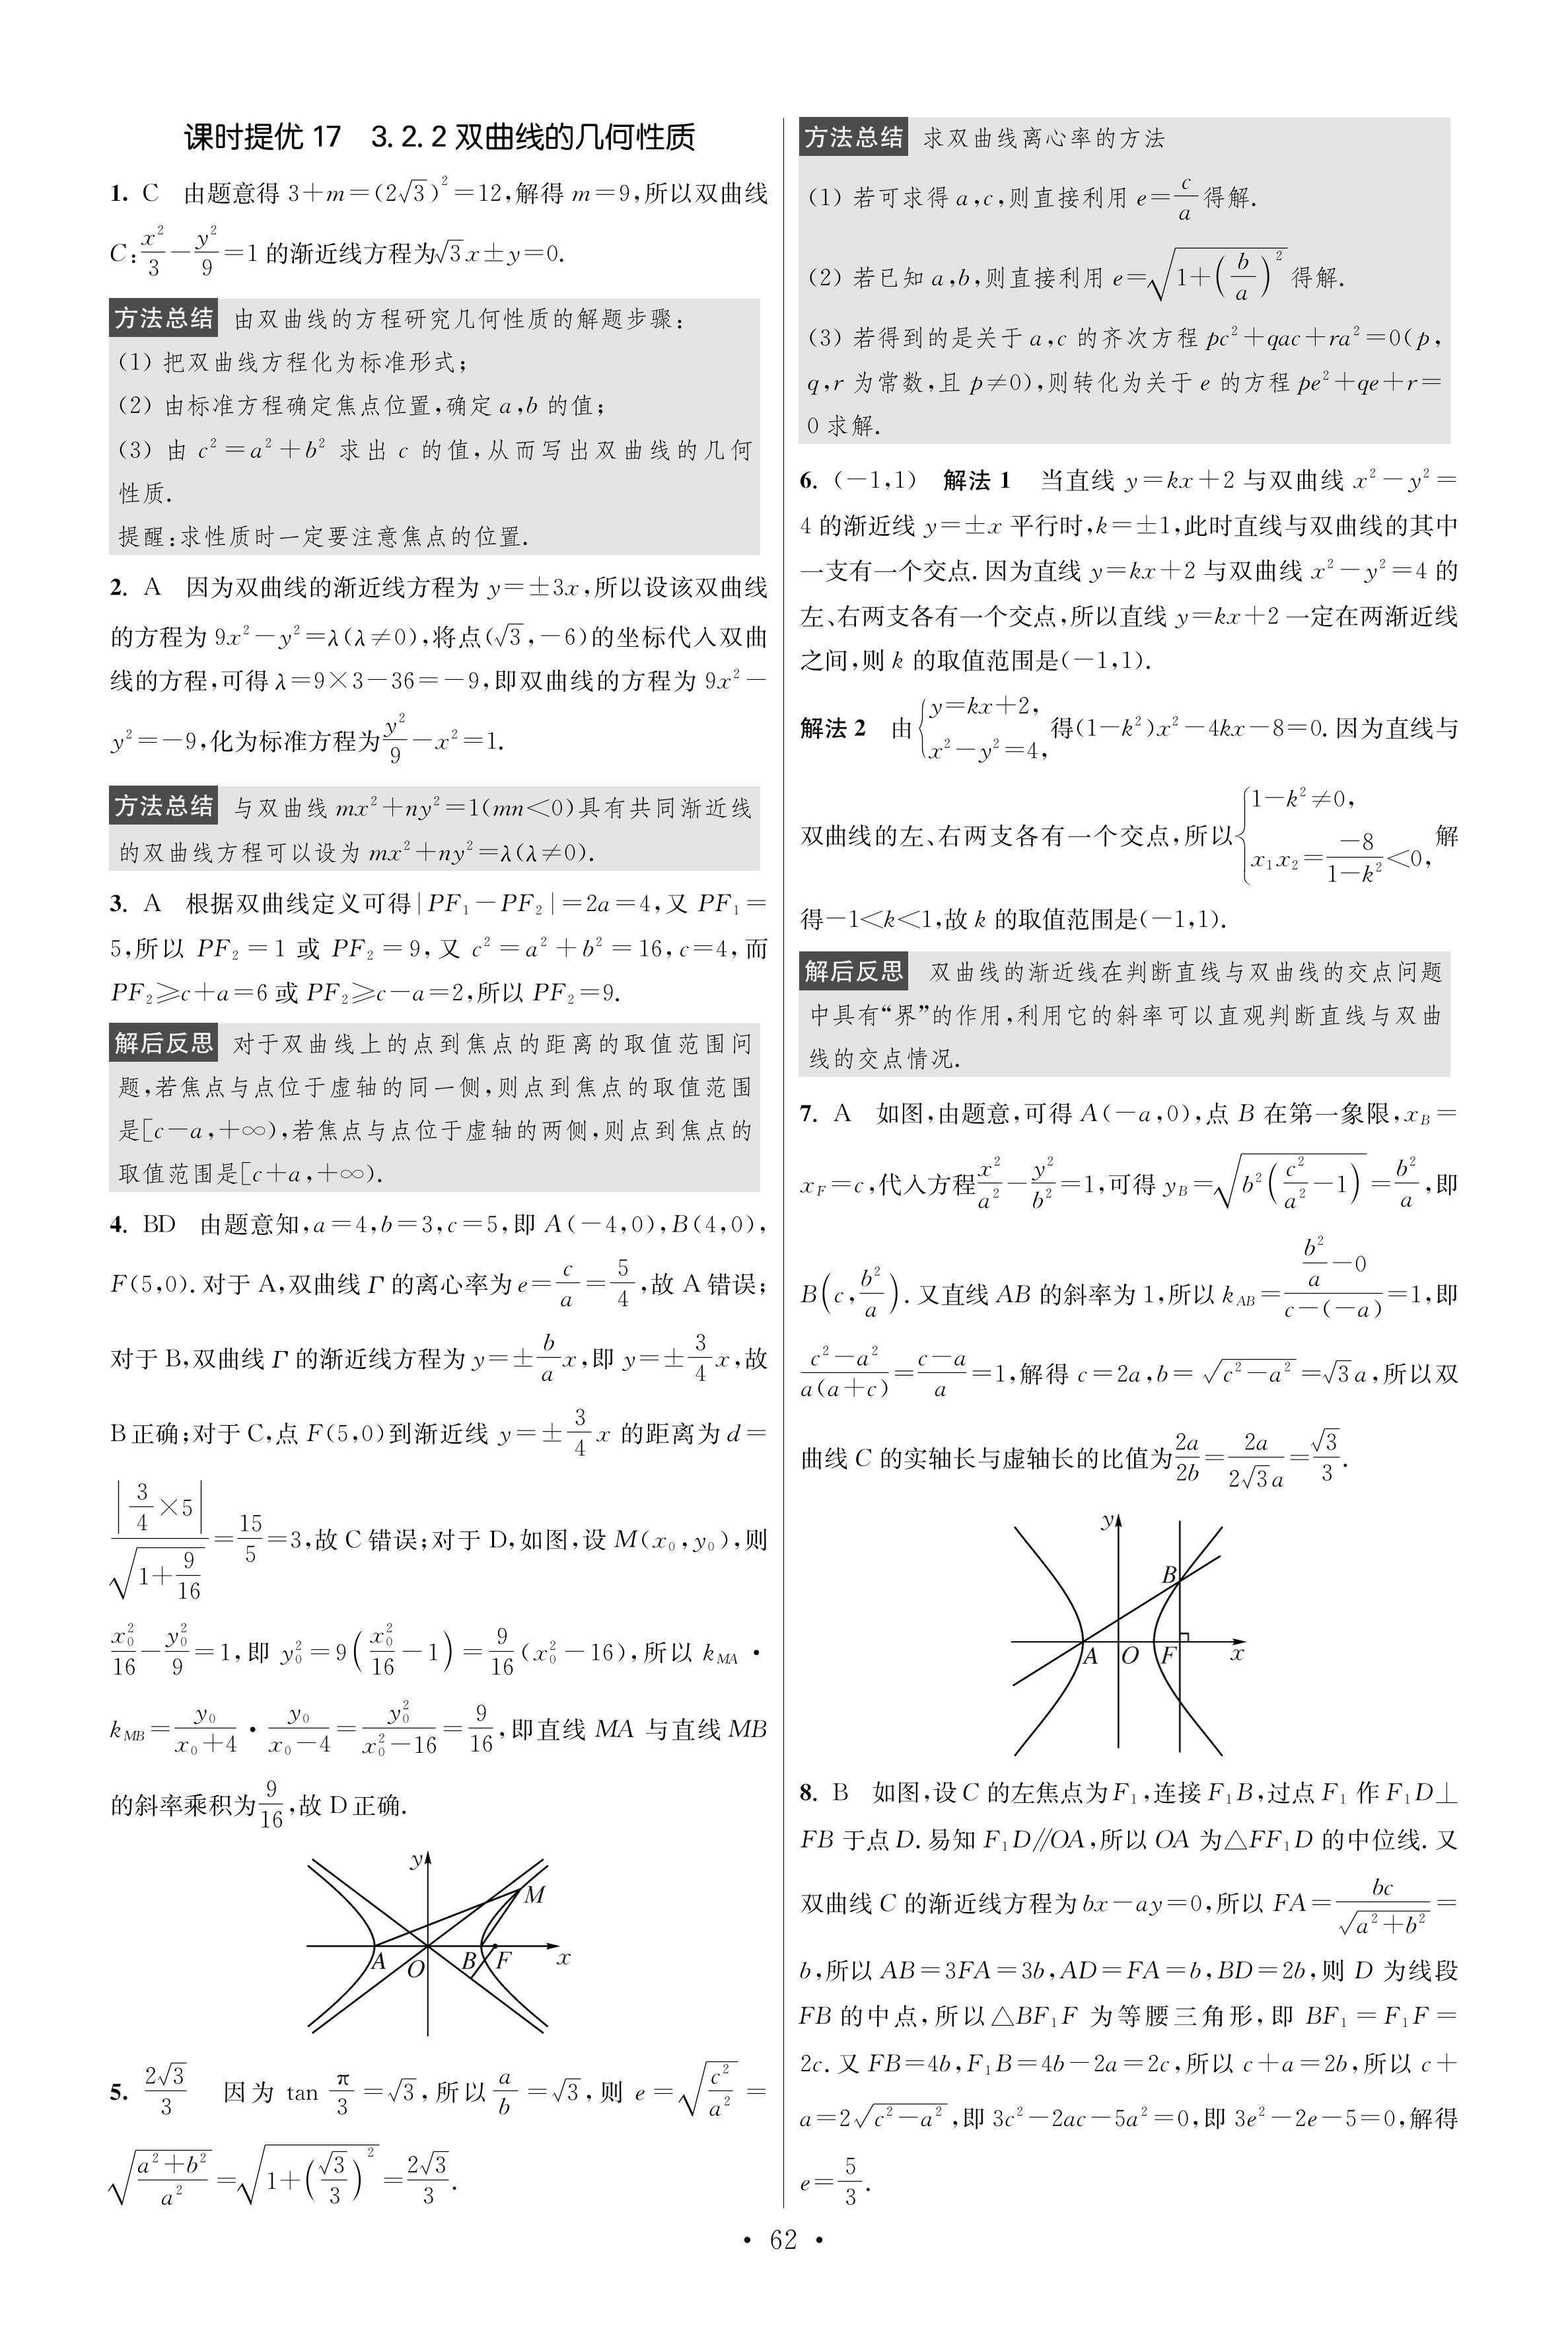 课时提优 17　3.2.2 双曲线的几何性质
1. C　由题意得 3+m=(2√3)²=12,解得 m=9,所以双曲线
C:x²/3-y²/9=1 的渐近线方程为√3x±y=0.
方法总结　由双曲线的方程研究几何性质的解题步骤:
(1) 把双曲线方程化为标准形式;
(2) 由标准方程确定焦点位置,确定 a,b 的值;
(3) 由 c²=a²+b² 求出 c 的值,从而写出双曲线的几何
性质.
提醒:求性质时一定要注意焦点的位置.
2. A　因为双曲线的渐近线方程为 y=±3x,所以设该双曲线
的方程为 9x²-y²=λ(λ≠0),将点(√3,-6)的坐标代入双曲
线的方程,可得 λ=9×3-36=-9,即双曲线的方程为 9x²-
y²=-9,化为标准方程为y²/9-x²=1.
方法总结　与双曲线 mx²+ny²=1(mn<0)具有共同渐近线
的双曲线方程可以设为 mx²+ny²=λ(λ≠0).
3. A　根据双曲线定义可得|PF₁-PF₂|=2a=4,又 PF₁=
5,所以 PF₂=1 或 PF₂=9,又 c²=a²+b²=16,c=4,而
PF₂≥c+a=6 或 PF₂≥c-a=2,所以 PF₂=9.
解后反思　对于双曲线上的点到焦点的距离的取值范围问
题,若焦点与点位于虚轴的同一侧,则点到焦点的取值范围
是[c-a,+∞),若焦点与点位于虚轴的两侧,则点到焦点的
取值范围是[c+a,+∞).
4. BD　由题意知,a=4,b=3,c=5,即 A(-4,0),B(4,0),
F(5,0).对于 A,双曲线 Γ 的离心率为 e=c/a=5/4,故 A 错误;
对于 B,双曲线 Γ 的渐近线方程为 y=±(b/a)x,即 y=±(3/4)x,故
B 正确;对于 C,点 F(5,0)到渐近线 y=±(3/4)x 的距离为 d=
|3/4×5|/√(1+9/16)=15/5=3,故 C 错误;对于 D,如图,设 M(x₀,y₀),则
x₀²/16-y₀²/9=1,即 y₀²=9(x₀²/16-1)=9/16(x₀²-16),所以 k_MA·
k_MB=y₀/(x₀+4)·y₀/(x₀-4)=y₀²/(x₀²-16)=9/16,即直线 MA 与直线 MB
的斜率乘积为9/16,故 D 正确.
y
M
A
O
B
F
x
5. 2√3/3　因为 tan π/3=√3,所以a/b=√3,则 e=√(c²/a²)=
√((a²+b²)/a²)=√(1+(√3/3)²)=2√3/3.
方法总结　求双曲线离心率的方法
(1) 若可求得 a,c,则直接利用 e=c/a得解.
(2) 若已知 a,b,则直接利用 e=√(1+(b/a)²)得解.
(3) 若得到的是关于 a,c 的齐次方程 pc²+qac+ra²=0(p,
q,r 为常数,且 p≠0),则转化为关于 e 的方程 pe²+qe+r=
0 求解.
6. (-1,1)　解法 1　当直线 y=kx+2 与双曲线 x²-y²=
4 的渐近线 y=±x 平行时,k=±1,此时直线与双曲线的其中
一支有一个交点.因为直线 y=kx+2 与双曲线 x²-y²=4 的
左、右两支各有一个交点,所以直线 y=kx+2 一定在两渐近线
之间,则 k 的取值范围是(-1,1).
解法 2　由{y=kx+2, x²-y²=4,得(1-k²)x²-4kx-8=0.因为直线与
双曲线的左、右两支各有一个交点,所以{1-k²≠0, x₁x₂=-8/(1-k²)<0,解
得-1<k<1,故 k 的取值范围是(-1,1).
解后反思　双曲线的渐近线在判断直线与双曲线的交点问题
中具有“界”的作用,利用它的斜率可以直观判断直线与双曲
线的交点情况.
7. A　如图,由题意,可得 A(-a,0),点 B 在第一象限,x_B=
x_F=c,代入方程x²/a²-y²/b²=1,可得 y_B=√(b²(c²/a²-1))=b²/a,即
B(c,b²/a).又直线 AB 的斜率为 1,所以 k_AB=(b²/a-0)/(c-(-a))=1,即
(c²-a²)/(a(a+c))=(c-a)/a=1,解得 c=2a,b=√(c²-a²)=√3a,所以双
曲线 C 的实轴长与虚轴长的比值为2a/2b=2a/(2√3a)=√3/3.
y
B
A
O
F
x
8. B　如图,设 C 的左焦点为 F₁,连接 F₁B,过点 F₁ 作 F₁D⊥
FB 于点 D.易知 F₁D∥OA,所以 OA 为△FF₁D 的中位线.又
双曲线 C 的渐近线方程为 bx-ay=0,所以 FA=bc/√(a²+b²)=
b,所以 AB=3FA=3b,AD=FA=b,BD=2b,则 D 为线段
FB 的中点,所以△BF₁F 为等腰三角形,即 BF₁=F₁F=
2c.又 FB=4b,F₁B=4b-2a=2c,所以 c+a=2b,所以 c+
a=2√(c²-a²),即 3c²-2ac-5a²=0,即 3e²-2e-5=0,解得
e=5/3.
· 62 ·